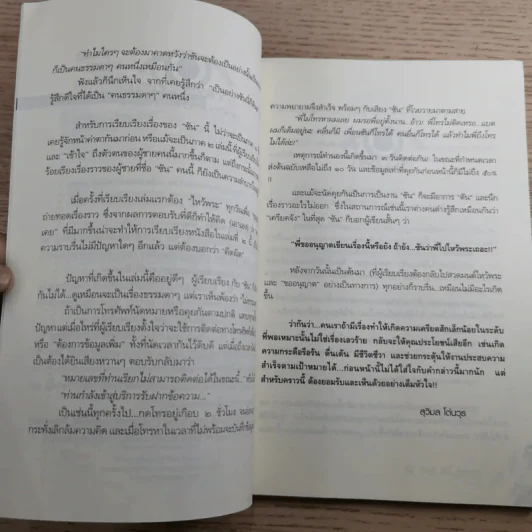 "ทำไมใครๆ จะต้องมาคาดหวังว่าซันจะต้องเป็นอย่างนั้น
ก็เป็นคนธรรมดาๆ คนหนึ่งเหมือนกัน"
ฟังแล้วก็นึกเห็นใจ จากที่เคยรู้สึกว่า
รู้สึกดีใจที่ได้เป็น "คนธรรมดาๆ" คนหนึ่ง
สำหรับการเรียบเรียงเรื่องของ "ซัน" นี้ ไม่ว่าจะเป็น
เคยรู้จักหน้าค่าตากันมาก่อน หรือแม้จะเป็นภาค ๒
และ "เข้าใจ" ถึงตัวตนของผู้ชายคนนี้มากขึ้นก็ตาม
ร้อยเรียงเรื่องราวของผู้ชายที่ชื่อ "ซัน" คนนี้ ก็ยังเป็นความ
เมื่อครั้งที่เรียบเรียงเล่มแรกต้อง "ไหว้พระ" ทุกวัน
ถ่ายทอดเรื่องราว ซึ่งจากผลการตอบรับที่ดีก็ทำให้คิด
เคย" ที่มีมากขึ้นน่าจะทำให้การเรียบเรียงหนังสือในเล่มที่ ๒
ความราบรื่นไม่มีปัญหาใดๆ อีกแล้ว แต่ต้องบอกว่า "คิดผิด"
ปัญหาที่เกิดขึ้นในเล่มนี้คืออยู่ดีๆ ผู้เรียบเรียง กับ "ซัน"
กันไม่ได้...ดูเหมือนจะเป็นเรื่องธรรมดา แต่เราเห็นพ้องว่า
ถ้าเป็นการโทรศัพท์ที่นัดหมายหรือคุยกันตามปกติ
ปัญหาแต่เมื่อไหร่ที่ผู้เรียบเรียงตั้งใจว่าจะใช้การติดต่อทาง
หรือ "ต้องการข้อมูลเพิ่ม" ทั้งที่นัดเวลากันไว้ดิบดี แต่เมื่อถึง
ต้องเป็นได้ยินเสียงหวานๆ ตอบรับกลับมาว่า
"หมายเลขที่ท่านเรียกไม่สามารถติดต่อได้ในขณะนี้"
"ท่านกำลังเข้าสู่บริการรับฝากข้อความ..."
เป็นเช่นนี้ทุกครั้งไป...กดโทรอยู่เกือบ ๒ ชั่วโมง
กระทั่งเลิกล้มความคิด และเมื่อโทรหาในเวลาที่ไม่พร้อมจะ
ความพยายามจึงสำเร็จ พร้อมๆ กับเสียง "ซัน" ที่โวยวายมาตามสาย
"พี่ไม่โทรมาเลย ผมรอพี่อยู่ตั้งนาน. อ้าว! พี่โทรไม่ติดเหรอ...แบต
ผมก็เต็มอยู่นะ คลื่นก็มี เพื่อนซันก็โทรได้ คนอื่นก็โทรได้ แล้วทำไมพี่ถึงโทร
ไม่ได้ล่ะ!"
เหตุการณ์ทำนองนี้เกิดขึ้นมา ๒ วันติดต่อกัน! ในขณะที่กำหนดเวลา
ส่งต้นฉบับเหลือไม่ถึง ๑๐ วัน และข้อมูลเท่าที่คุยกันก่อนหน้านี้ก็มีไม่ถึง ๕๐%
!!
และแม้จะนัดคุยกันเป็นการเป็นงาน "ซัน" ก็จะมีอาการ "ตัน" และนึก
เรื่องราวอะไรไม่ออก ซึ่งในสถานการณ์เช่นนี้เราต่างคนต่างรู้สึกเหมือนกันว่า
"เครียดจัง" ในที่สุด "ซัน" ก็บอกผู้เขียนสั้นๆ ว่า
"พี่ขออนุญาตเขียนเรื่องนี้หรือยัง ถ้ายัง...ซันว่าพี่ไปไหว้พระเถอะ!!"
หลังจากวันนั้นเป็นต้นมา (ที่ผู้เรียบเรียงต้องกลับไปสวดมนต์ไหว้พระ
และ "ขออนุญาต" อย่างเป็นทางการ) ทุกอย่างก็ราบรื่น...เหมือนไม่มีอะไรเกิด
ขึ้น
ว่ากันว่า...คนเราถ้ามีเรื่องทำให้เกิดความเครียดสักเล็กน้อยในระดับ
ที่พอเหมาะนั้นไม่ใช่เรื่องเลวร้าย กลับจะเป็นประโยชน์เสียอีก เช่นเกิด
ความกระตือรือร้น ตื่นเต้น มีชีวิตชีวา และช่วยกระตุ้นให้งานประสบความ
สำเร็จตามเป้าหมายได้...ก่อนหน้านี้ไม่ได้ใส่ใจกับคำกล่าวนี้มากนัก แต่
สำหรับคราวนี้ ต้องยอมรับและเห็นด้วยอย่างเต็มหัวใจ!!
สุวิมล โต่นวุธ